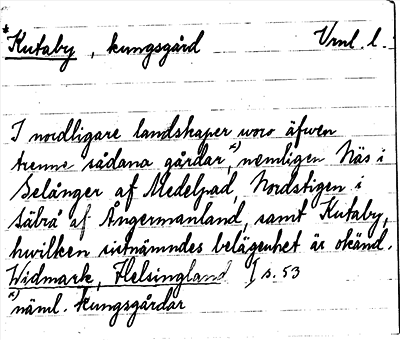 *Kutaby, kungsgård Vml. l.
I nordligare landskaper woro äfwen
trenne sådana gårdar,x) nemligen Näs i
Selånger af Medelpad, Nordstigen i
Säbrå af Ångermanland, samt Kutaby,
hwilken sistnämndes belägenhet är okänd.
Widmark, Helsingland I s. 53
x) näml. kungsgårdar